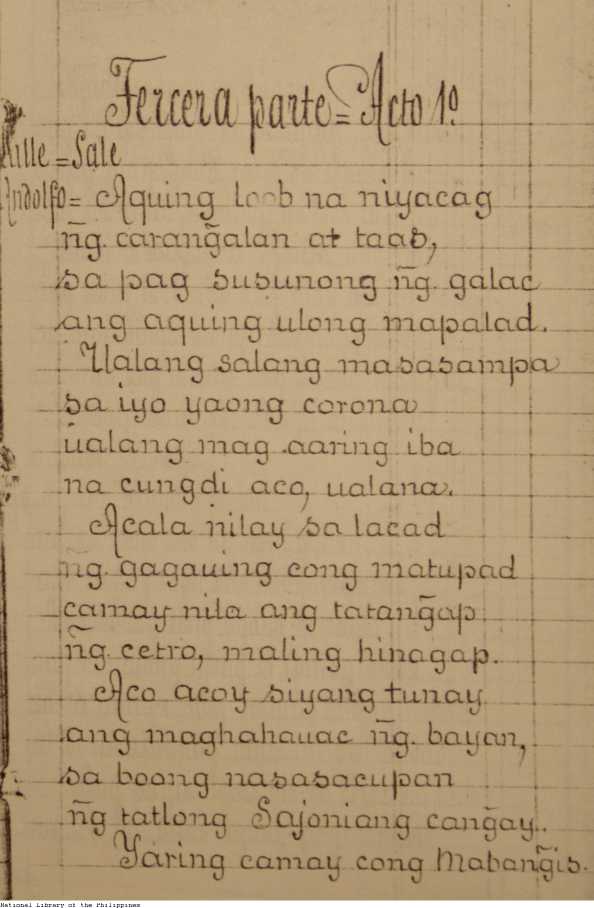 Tercera parte = Acto 1º
Calle = Sale
Andolfo = Aquing loob na niyacag
n̄g. caran̄galan at taas,
sa pag susunong n̄g. galac
ang aquing ulong mapalad.
Ualang salang masasampa
sa iyo yaong corona
ualang mag aaring iba
na cungdi aco, ualana.
Acala nilay sa lacad
n̄g. gagauing cong matupad
camay nila ang tatan̄gap
n̄g. cetro, maling hinagap.
Aco acoy siyang tunay
ang maghahauac n̄g. bayan,
sa boong nasasacupan
n̄g tatlong Sajoniang can̄gay..
Yaring camay cong Maban̄gis.
National Library of the Philippines